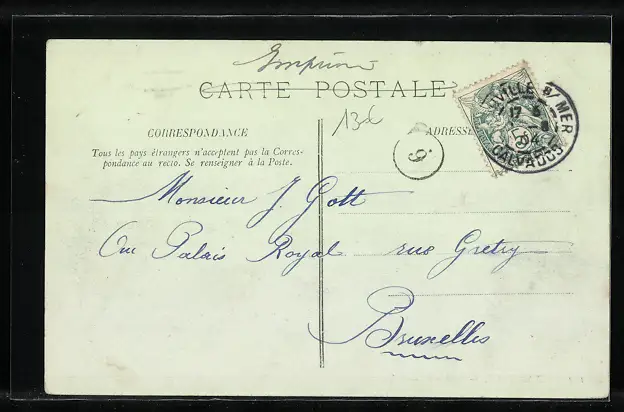 Imprimé
CARTE POSTALE
13c
CORRESPONDANCE
Tous les pays étrangers n'acceptent pas la Corres-
pondance au recto. Se renseigner à la Poste.
ADRESSE
9
VILLE S/ MER
17
04
CALVADOS
Monsieur J. Gott
Au Palais Royal rue Gretry
Bruxelles